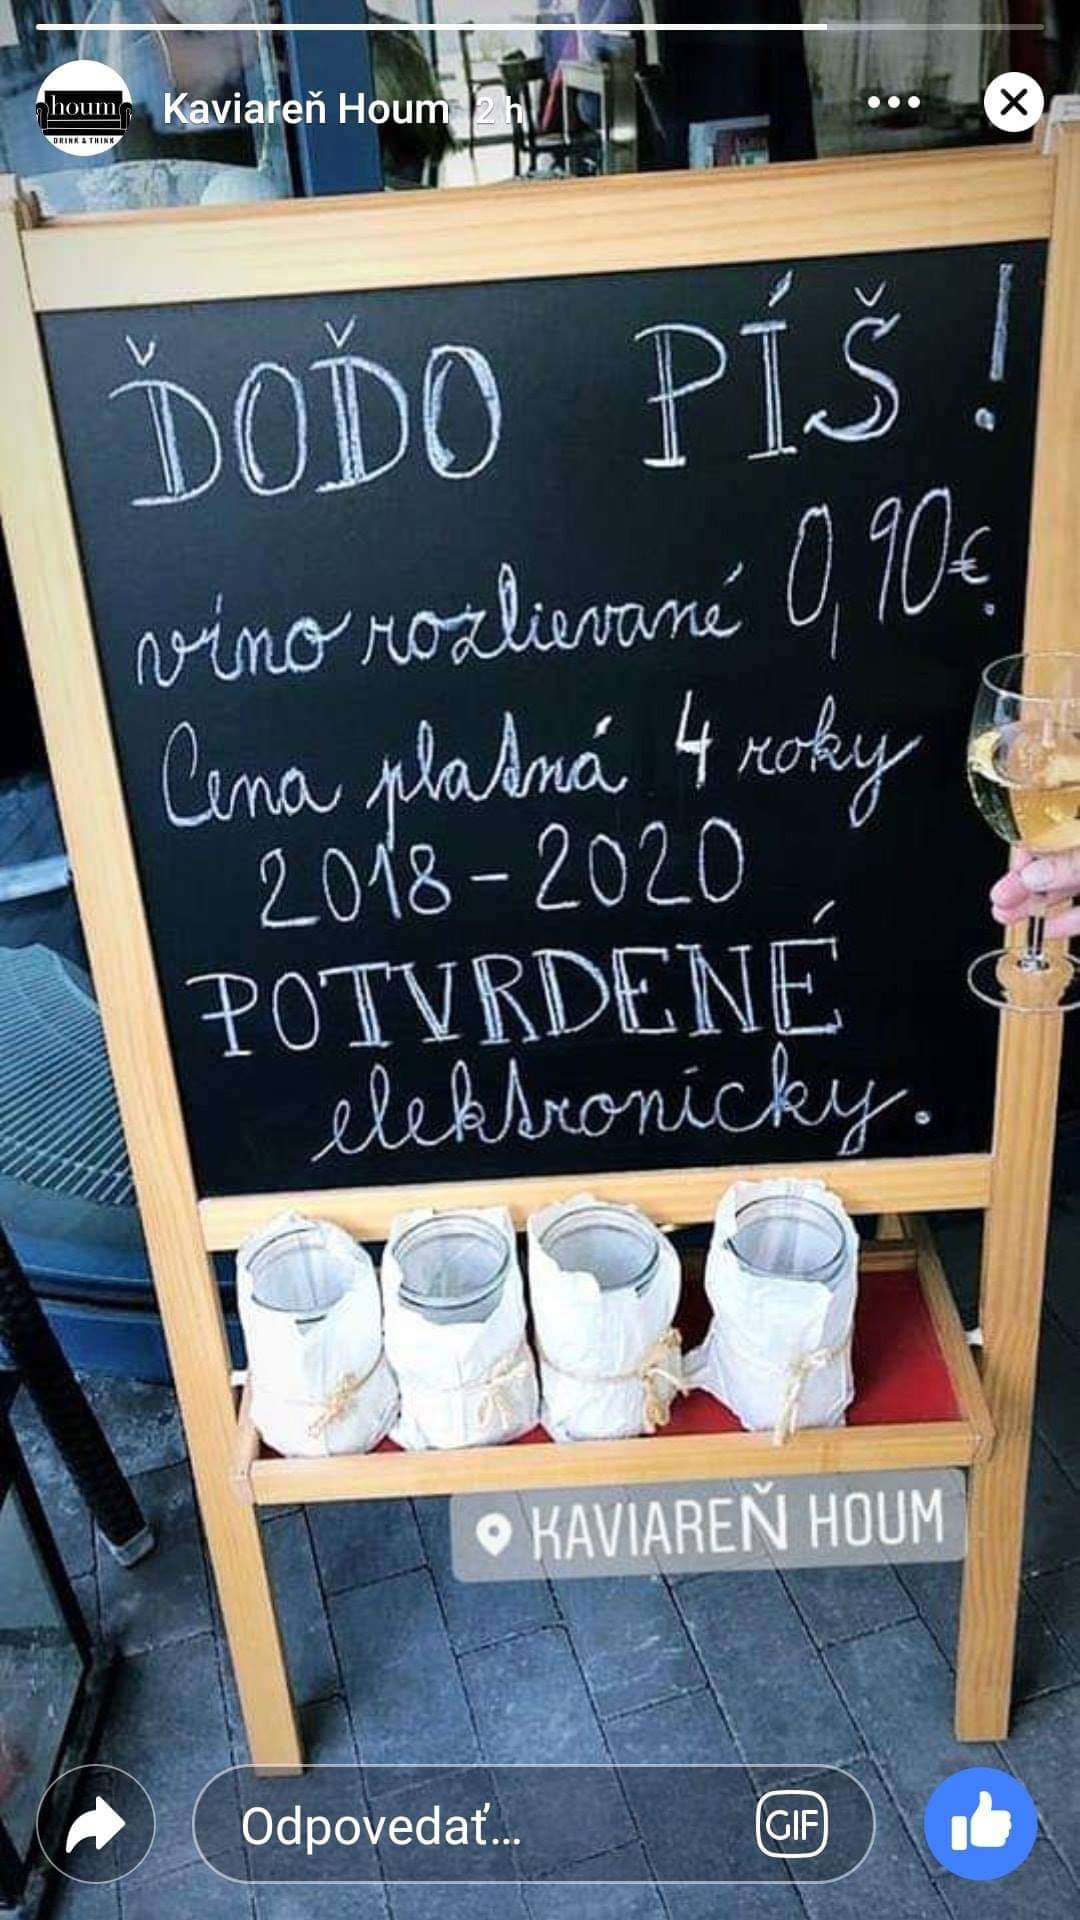 houm
DRINK & THINK
Kaviareň Houm 2 h
ĎOĎO PÍŠ!
víno rozlievané 0,90€.
Cena platná 4 roky
2018-2020
POTVRDENÉ
elektronicky.
KAVIAREŇ HOUM
Odpovedať...
GIF